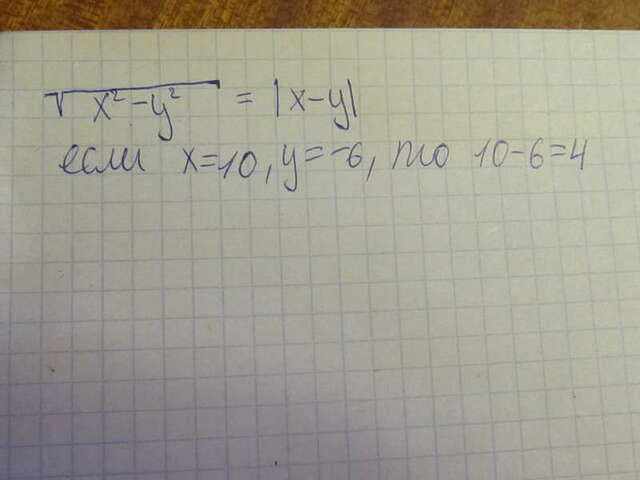 √(x² - y²) = |x-y|
если x=10, y=-6, то 10-6=4